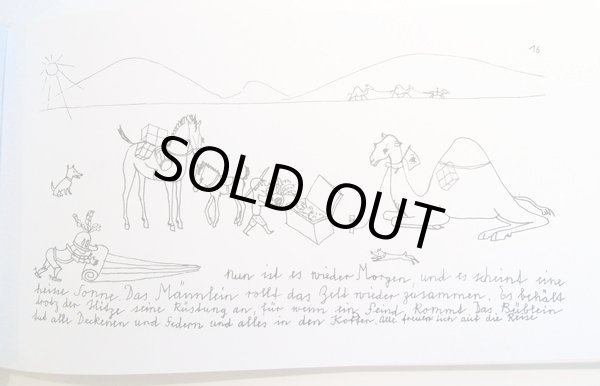 16
SOLD OUT
Nun ist es wieder Morgen, und es scheint eine
heise Sonne. Das Männlein rollt das Zelt wieder zusammen. Es behält
trotz der Hitze seine Rüstung an, für wenn ein Feind kommt. Das Büblein
tut alle Deckenen und Federn und alles in den Koffer. Alle freuen sich auf die Reise